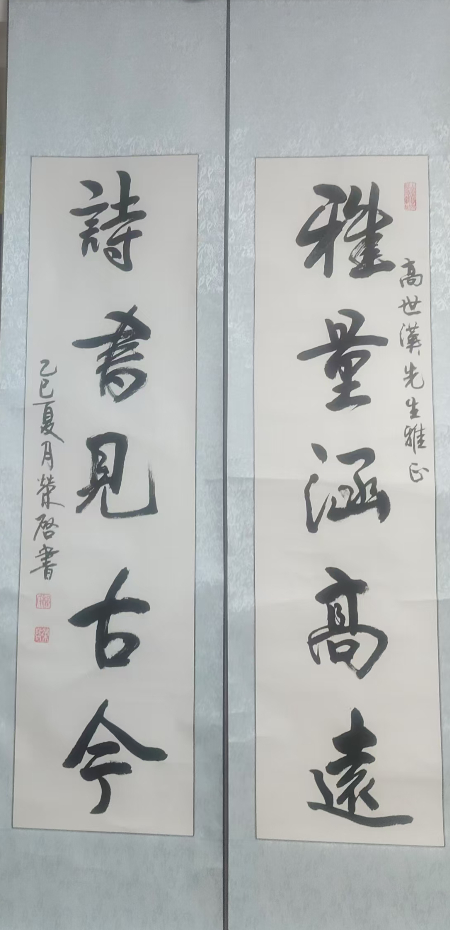 高世漢先生雅正
雅量涵高遠
詩書見古今
乙巳夏月榮啓書